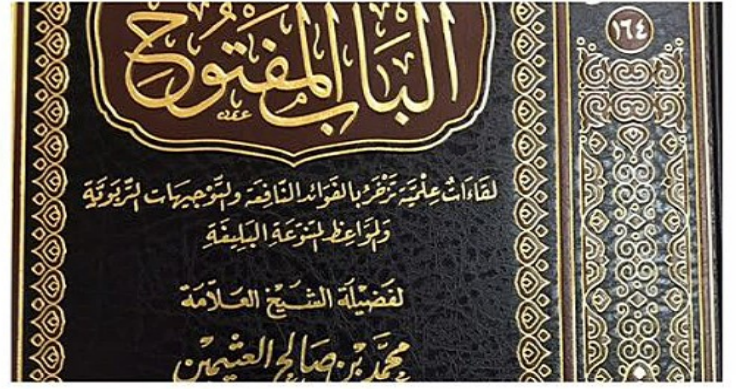 ١٦٤
الباب المفتوح
لقاءات علمية تزخر بالفوائد النافعة والتوجيهات التربوية
والمواعظ المتنوعة البليغة
لفضيلة الشيخ العلامة
محمد بن صالح العثيمين